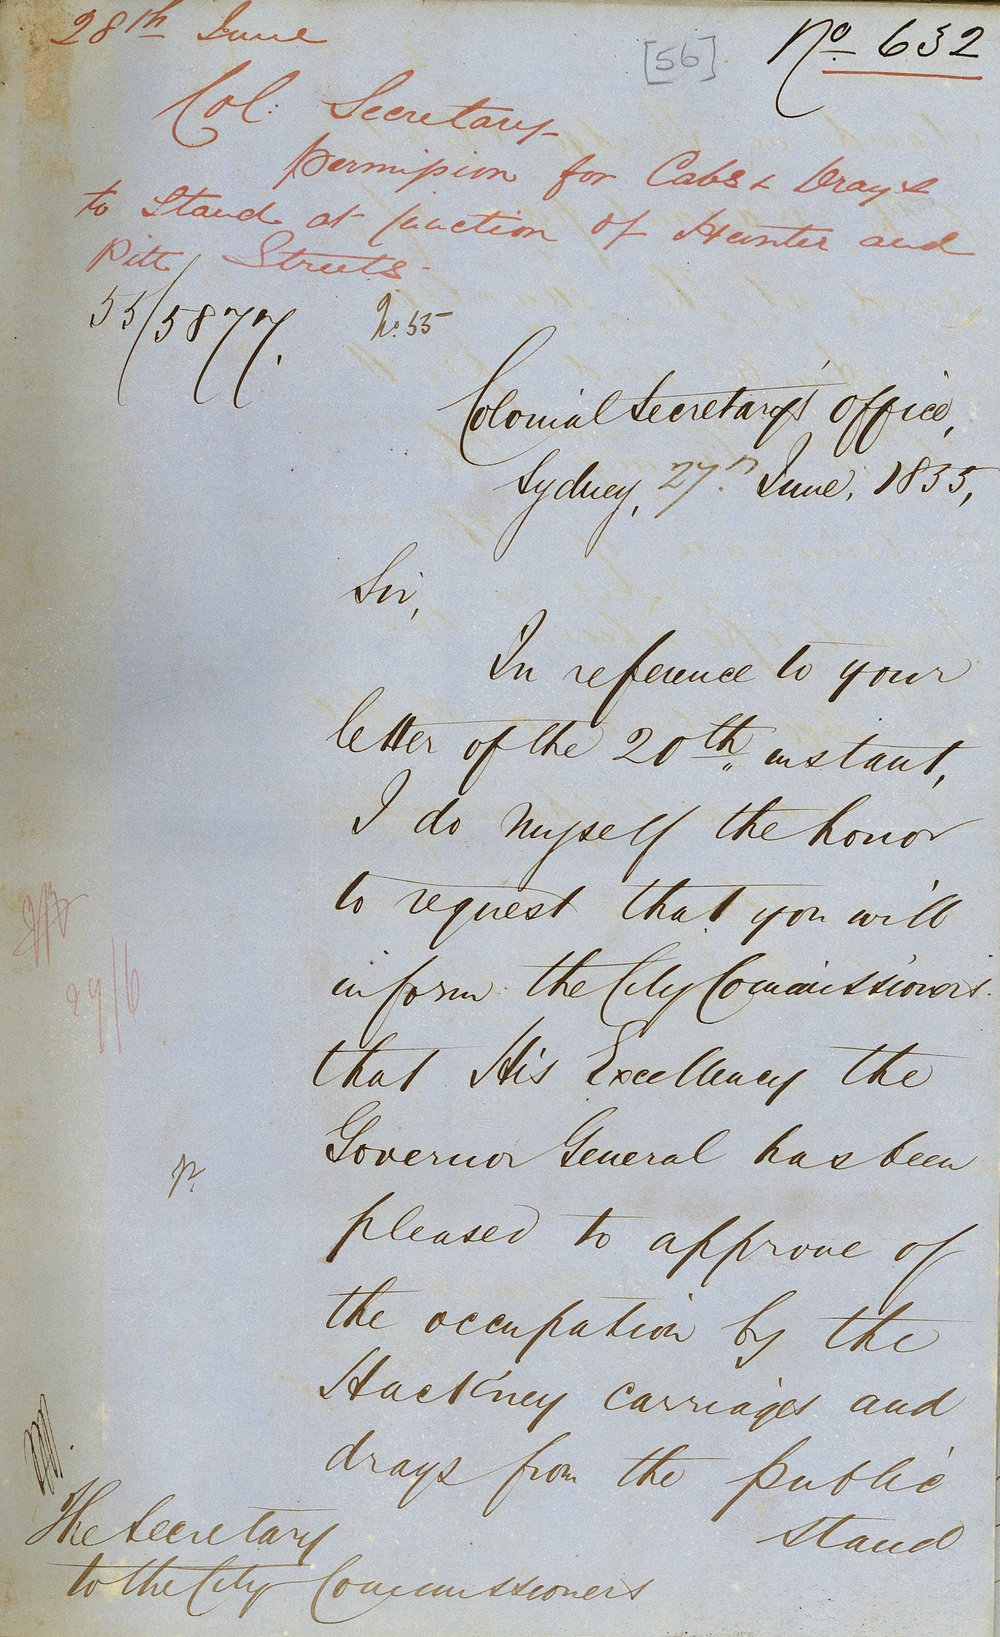 28th June
[56]
No 632
Col: Secretary
permission for Cabs & Drays
to Stand at junction of Hunter and
Pitt Streets.
55/5877.
No. 55
Colonial Secretary's Office,
Sydney, 27th June, 1855,
Sir,
In reference to your
letter of the 20th instant,
I do myself the honor
to request that you will
inform the City Commissioners
that His Excellency the
Governor General has been
pleased to approve of
the occupation by the
Hackney carriages and
drays from the public
stand
29/6
The Secretary
to the City Commissioners